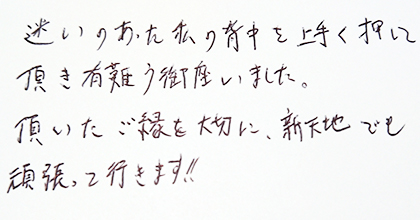 迷いのあった私の背中を上手く押して
頂き有難う御座いました。
頂いたご縁を大切に、新天地でも
頑張って行きます!!